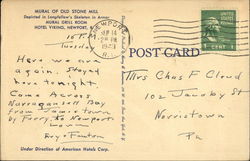 MURAL OF OLD STONE MILL
Depicted in Longfellow's Skeleton in Armor
MURAL GRILL ROOM
HOTEL VIKING, NEWPORT, R.I.
NEWPORT
SEP 14
2 PM
1943
R.I.
1 CENT 1
POST CARD
Tuesday
Here we are
again. Stayed
here tonight
Come Across
Narragansett Bay
from Jamestown
by Ferry to Newport
Love
Mrs Chas F Cloud
102 Jacoby St
Norristown
Pa
Under Direction of American Hotels Corp.